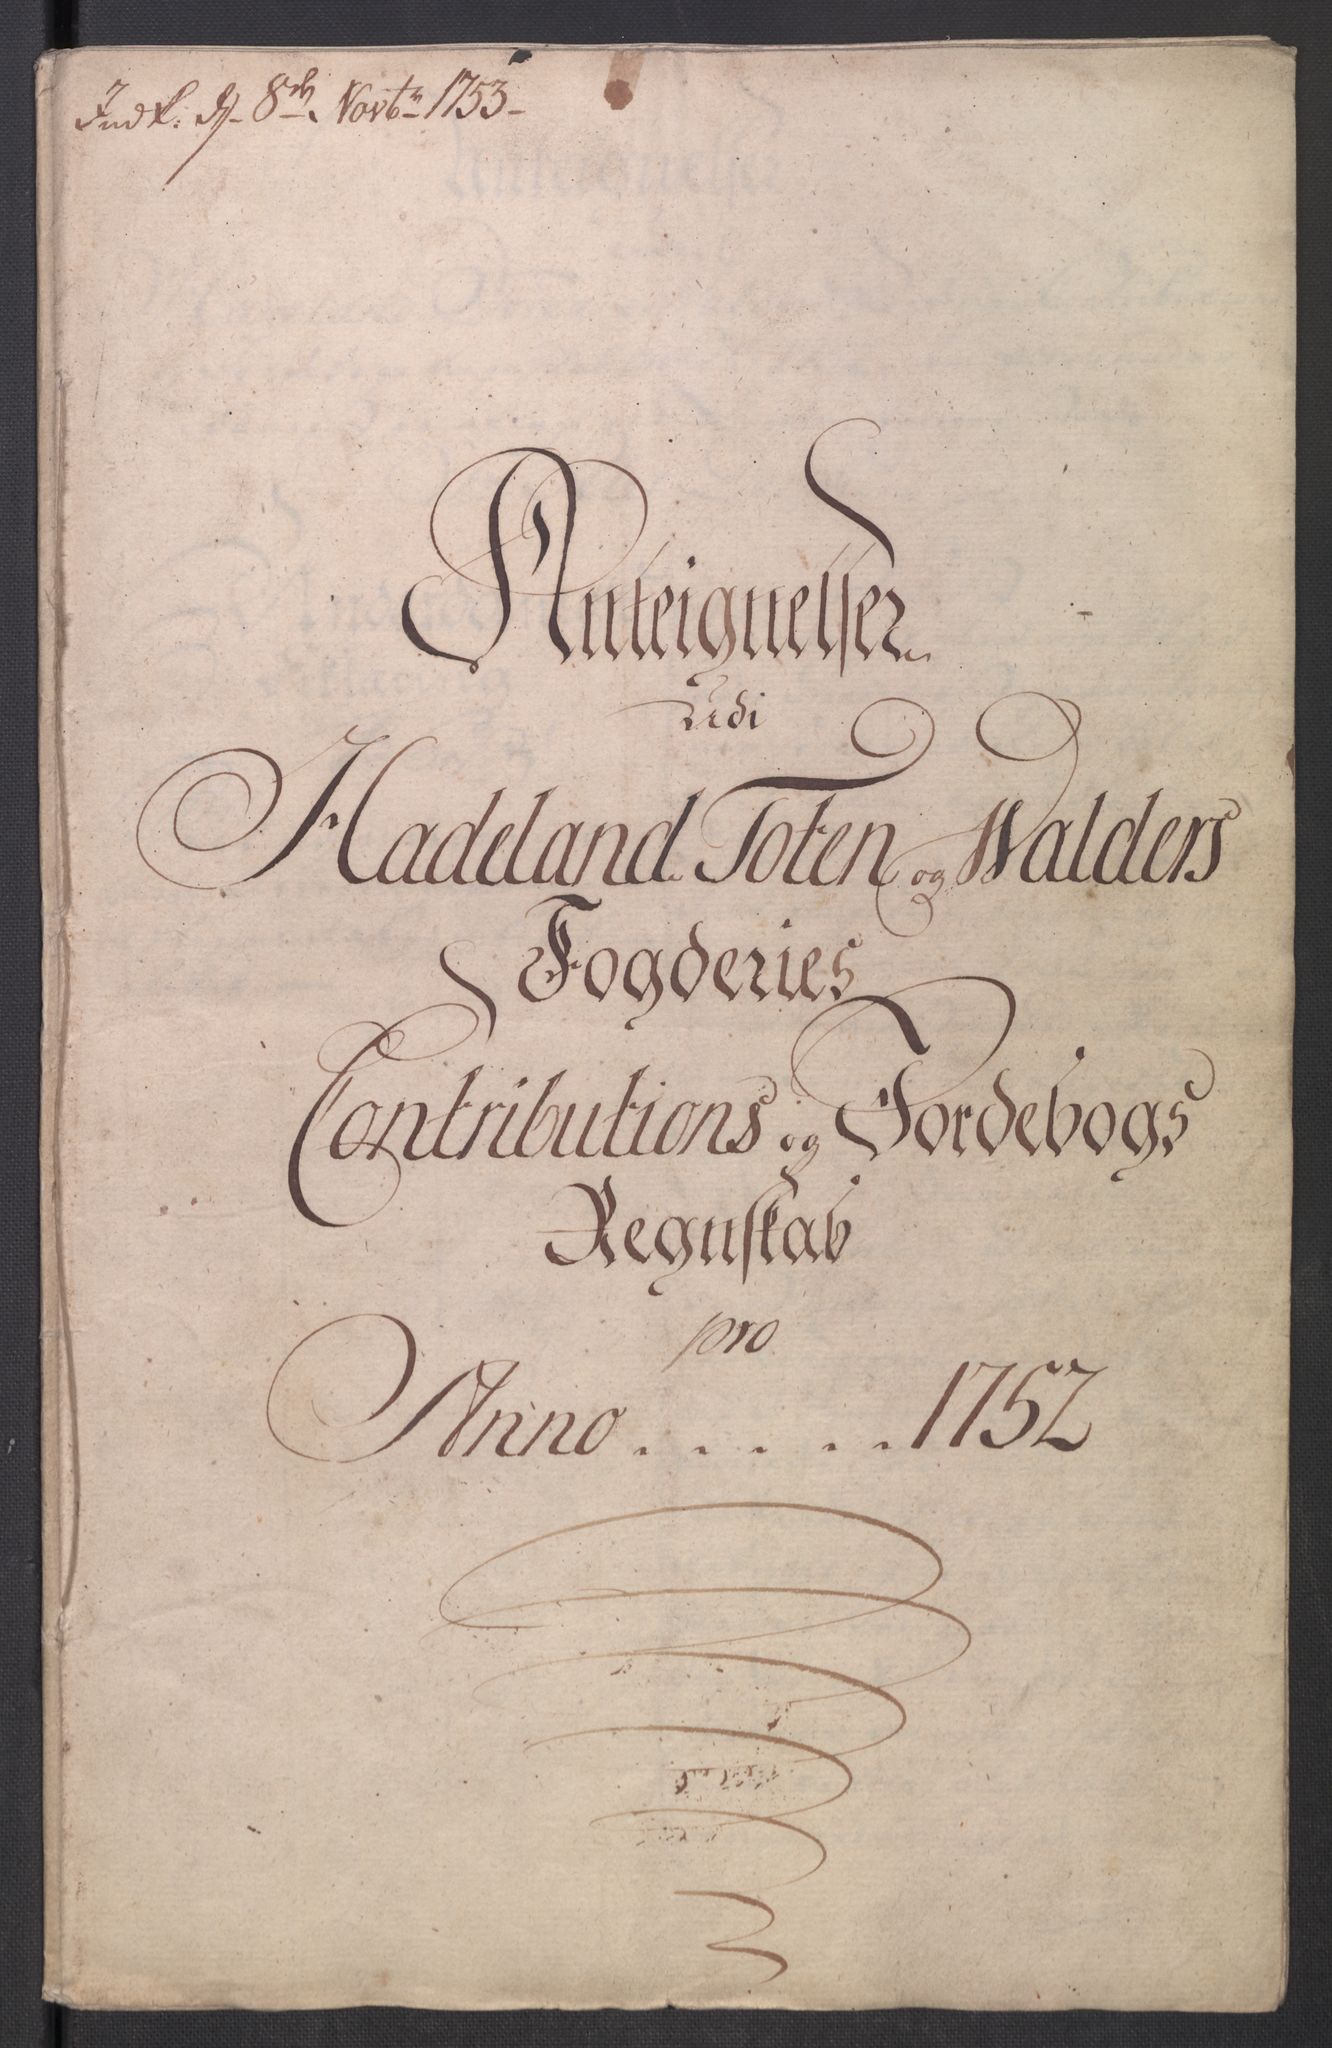 Indk: d 8de Novbr 1753
Anteignelser
Udi
Hadeland Toten og Walders
Fogderies
Contributions og Jordebogs
Regnskab
pro
Anno . . . . . 1752